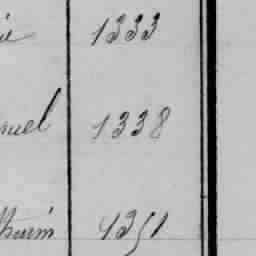 ie 1333
nuel 1338
thurin 1351